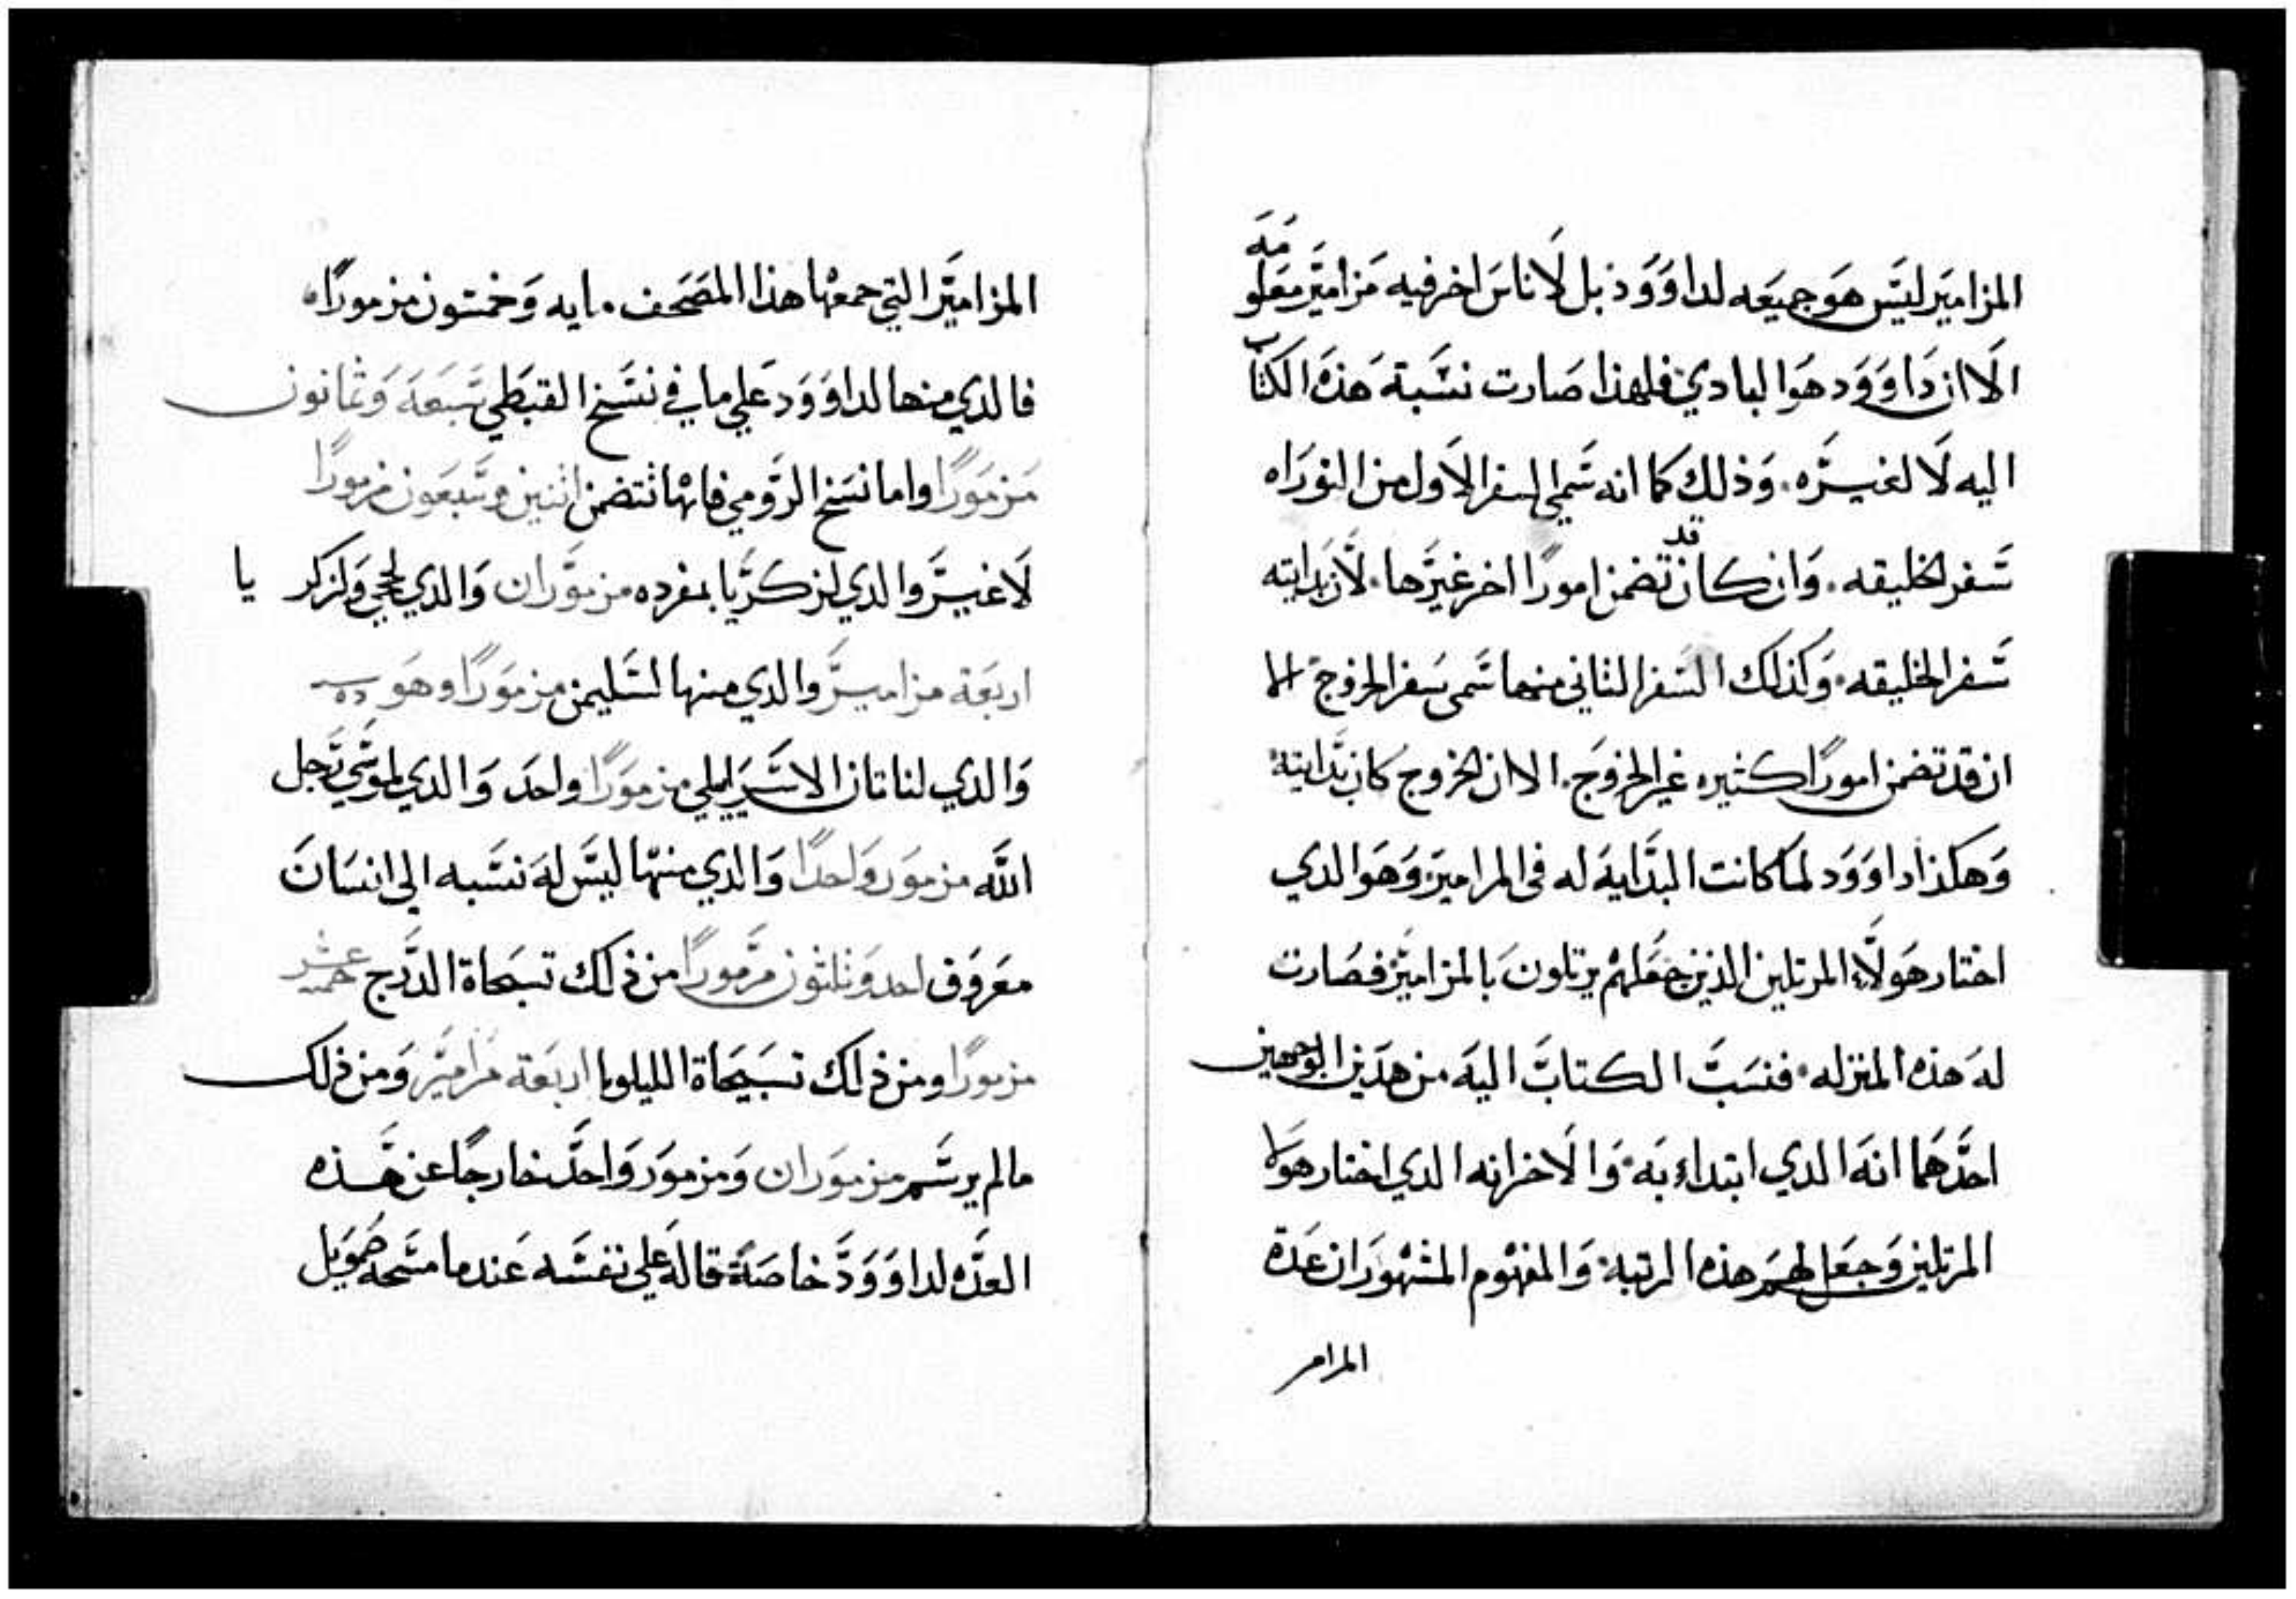 المزامير ليس هو جميعه لداوود بل لاناس اخر فيه مزامير معلومه
الا ان داوود هوا البادي فلهذا صارت نسبة هذه الكتاب
اليه لا لغيره. وذلك كما انه سمي السفر الاول من التوراه
سفر الخليقه. وان كان قد تضمن امورًا اخر غيرها. لان بدايته
سفر الخليقه. وكذلك السفر الثاني منها سمى سفر الخروج الا
ان قد تضمن امورًا كثيره غير الخروج. الا ان الخروج كان بدايته
وهكذا داوود لما كانت البدايه له في المزامير وهو الدي
اختار هولاء المرتلين الذين جعلهم يرتلون بالمزامير فصارت
له هذه المنزله. فنسب الكتاب اليه من هدين الوجهين
احدهما انه الدي ابتداء به. والاخر انه الدي اختار هولا
المرتلين وجعل لهم هذه الرتبة والمفهوم المشهور ان عدة
المزامير
المزامير التي جمعها هذا المصحف. مايه وخمسون مزمورًا.
فالدي منها لداوود على ما في نسخ القبطي تسبعة وثمانون
مزمورًا واما نسخ الرومي فانها تتضمن اثنين وسبعون مزمورًا
لا غير والدي لزكريا بمفرده مزموران والدي لحجي ولزكريا
اربعة مزامير والدي منها لسليمن مزمورًا وهو
والدي لناتان الاسراييلي مزمورًا واحد والدي لموسي رجل
الله مزمور واحدًا والدي منها ليس له نسبه الي انسان
معروف احد وثلثون مزمورًا من ذلك تسبحاة الدرج خمسة عشر
مزمورًا ومن ذلك تسبيحاة الليلويا اربعة مزامير ومن ذلك
مالم يرسم مزموران ومزمور واحد خارجًا عن هذه
العده لداوود خاصة قاله علي نفسه عندما مسحه صمويل